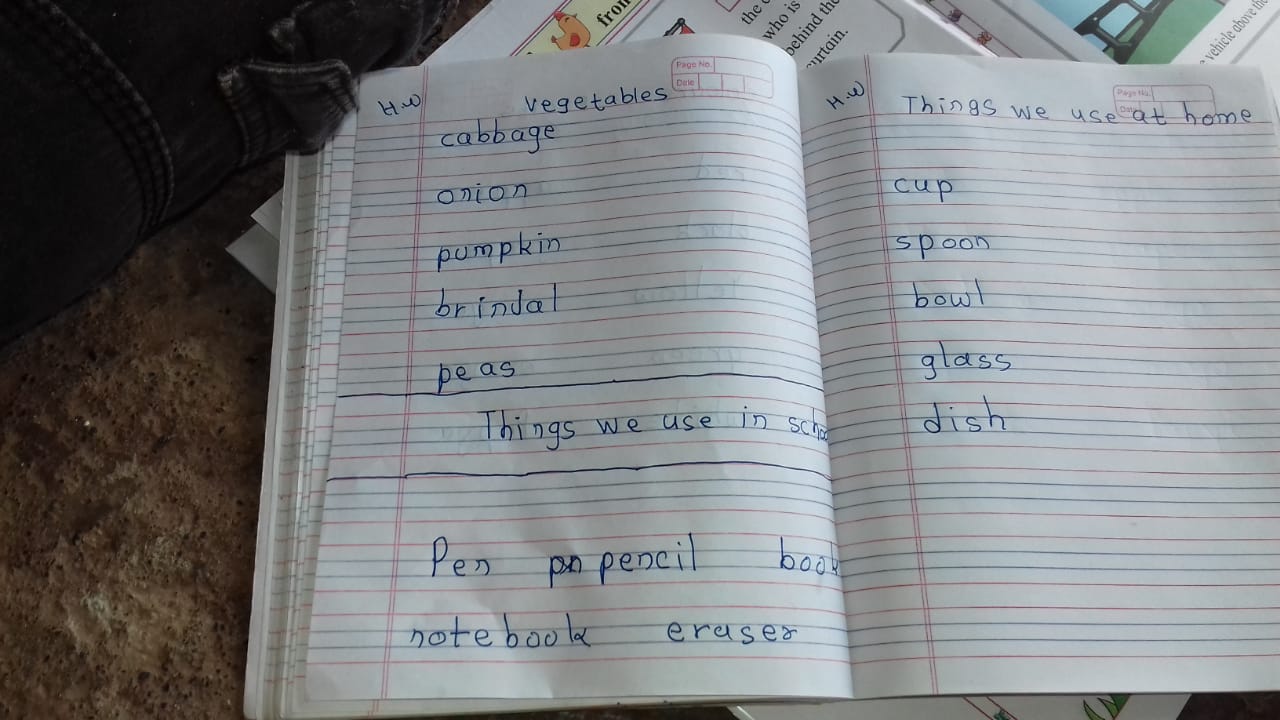 from
the
who is
behind the
curtain.
vehicle above the
Page No.
Date
H.W
vegetables
cabbage
onion
pumpkin
brindal
peas
Things we use in scho
Pen pn pencil book
notebook eraser
Page No.
Date
H.W
Things we use at home
cup
spoon
bowl
glass
dish